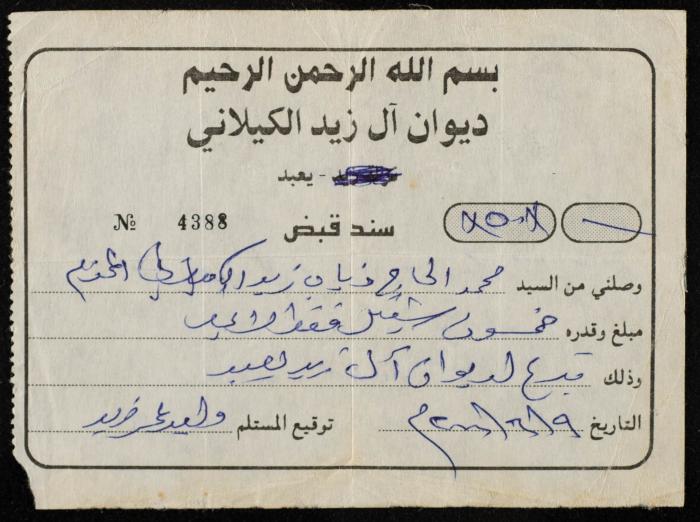 بسم الله الرحمن الرحيم
ديوان آل زيد الكيلاني
- يعبد
سند قبض № 4388
وصلني من السيد محمد الحاج ذياب زيد الكيلاني المحترم
مبلغ وقدره خمسون شيقل فقط لا غير
وذلك تبرع لديوان آل زيد يعبد
التاريخ توقيع المستلم وليد